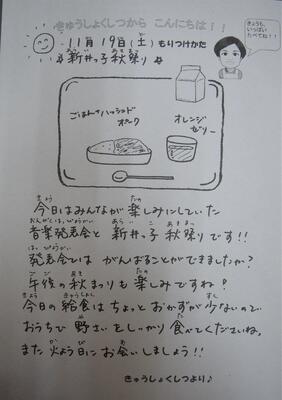 きゅうしょくしつから こんにちは！！
きょうも、
いっぱい
たべてね！！
11月19日(土) もりつけかた
新井っ子秋祭り
ごはん＋ハッシュド
ポーク
オレンジ
ゼリー
今日はみんなが 楽しみにしていた
音楽発表会と 新井っ子 秋祭りです!!
発表会では がんばることができましたか?
午後の秋まつりも 楽しみですね!
今日の給食は ちょっと おかずが 少ないので
おうちで 野さいを しっかり 食べてくださいね。
また 火よう日に お会いしましょう!!
きゅうしょくしつより♪